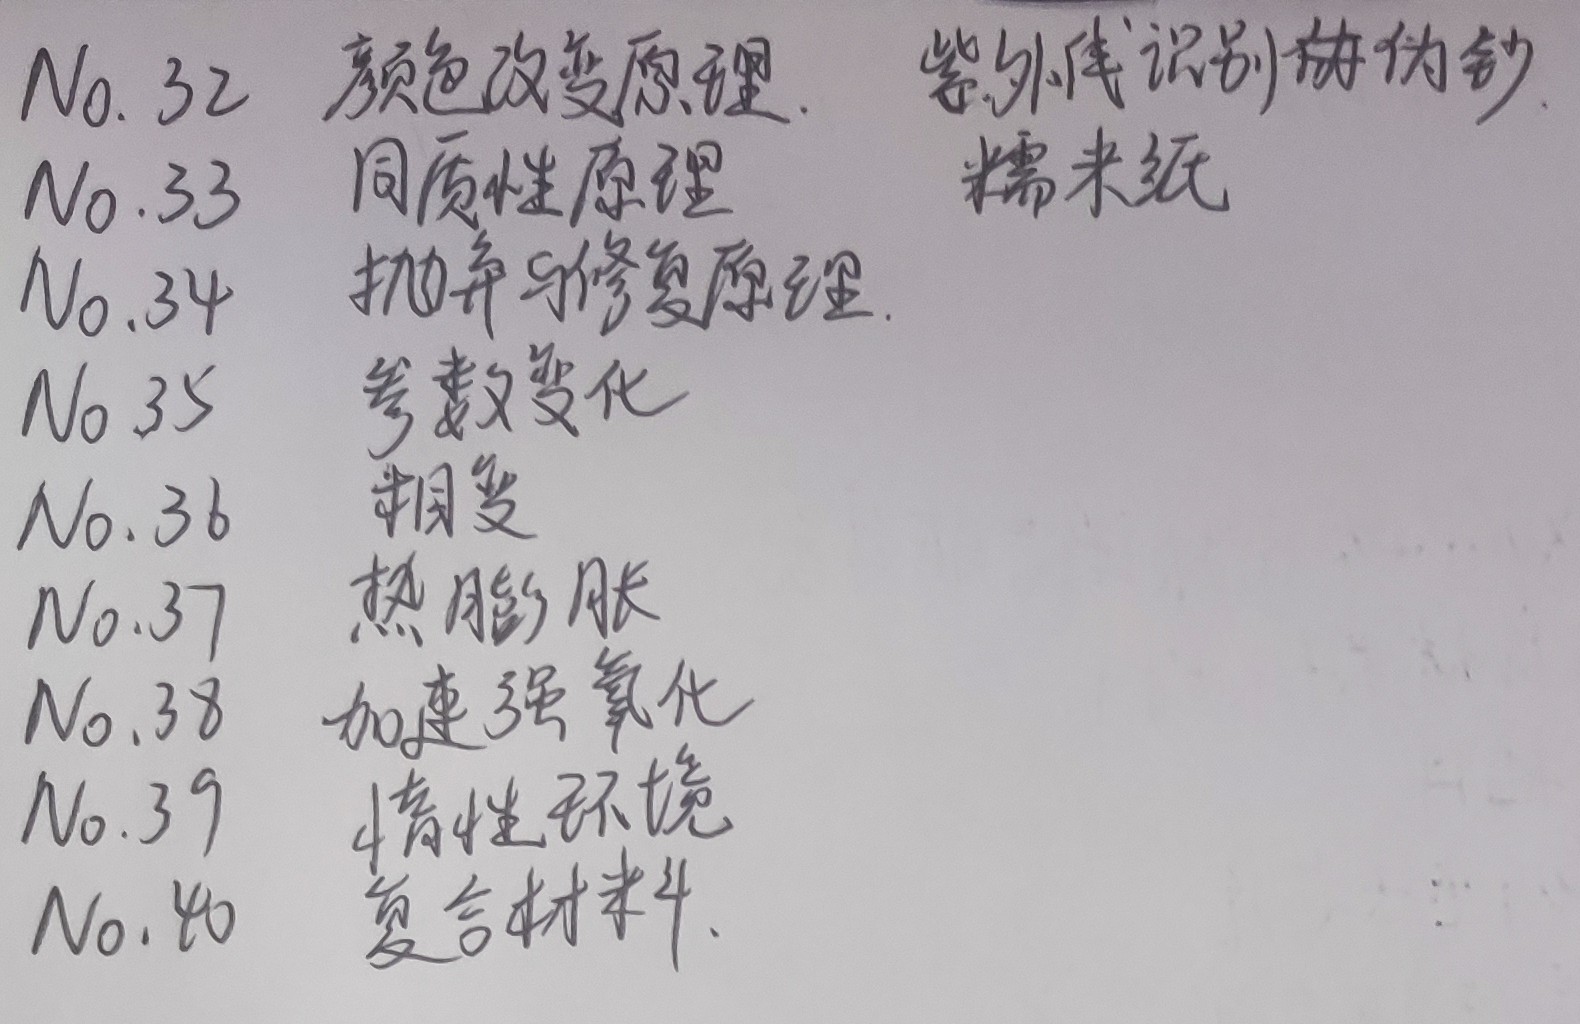 No.32 颜色改变原理. 紫外线识别伪钞.
No.33 同质性原理 糯米纸
No.34 抛弃与修复原理.
No.35 参数变化
No.36 相变
No.37 热膨胀
No.38 加速强氧化
No.39 惰性环境
No.40 复合材料.